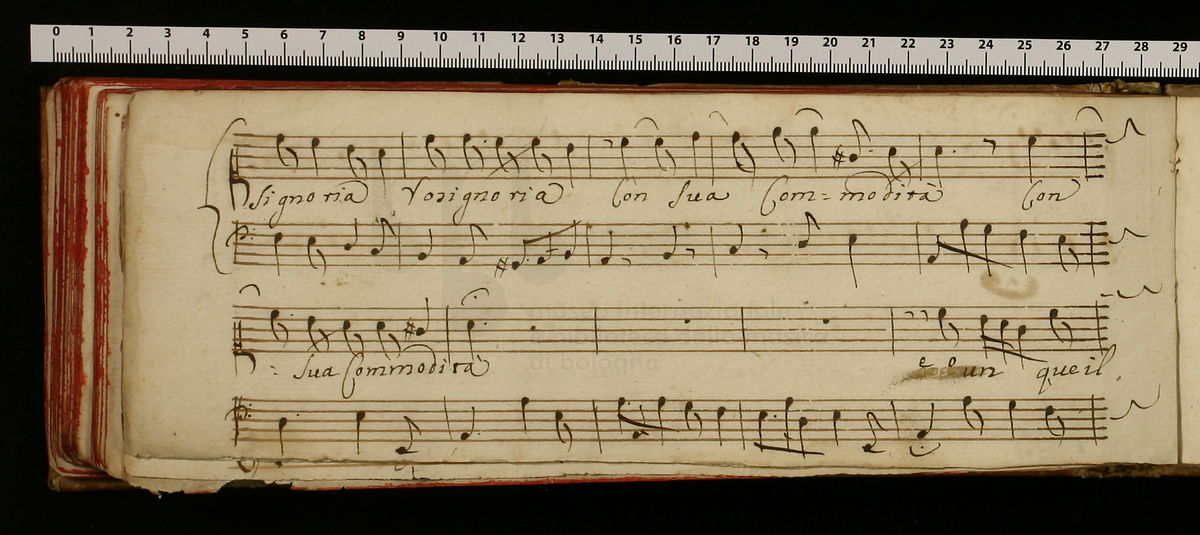 0 1 2 3 4 5 6 7 8 9 10 11 12 13 14 15 16 17 18 19 20 21 22 23 24 25 26 27 28 29
Signoria Vosignoria Con sua Com=modità Con
: sua Commodità e o un que il